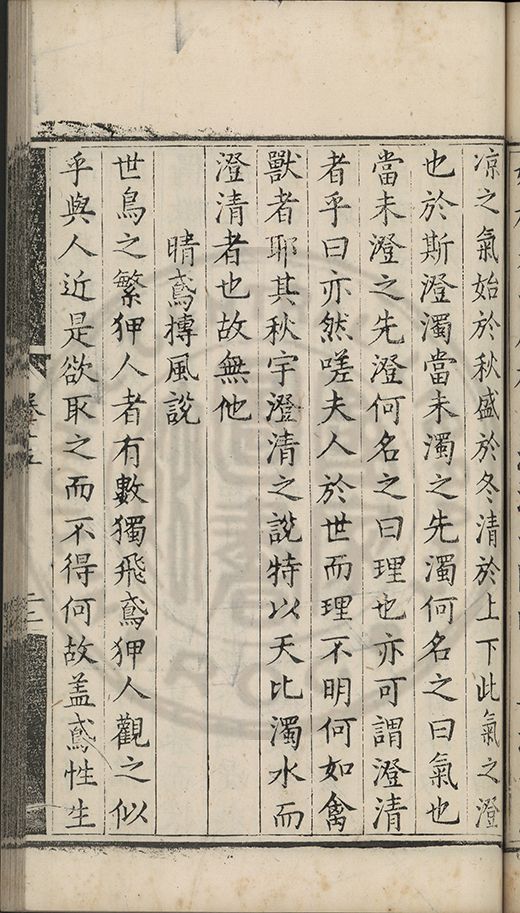 凉之氣始於秋盛於冬清於上下此氣之澄
也於斯澄濁當未濁之先濁何名之曰氣也
當未澄之先澄何名之曰理也亦可謂澄清
者乎曰亦然嗟夫人於世而理不明何如禽
獸者耶其秋宇澄清之說特以天比濁水而
澄清者也故無他
晴鳶摶風說
世鳥之繁狎人者有數獨飛鳶狎人觀之似
乎與人近是欲取之而不得何故盖鳶性生